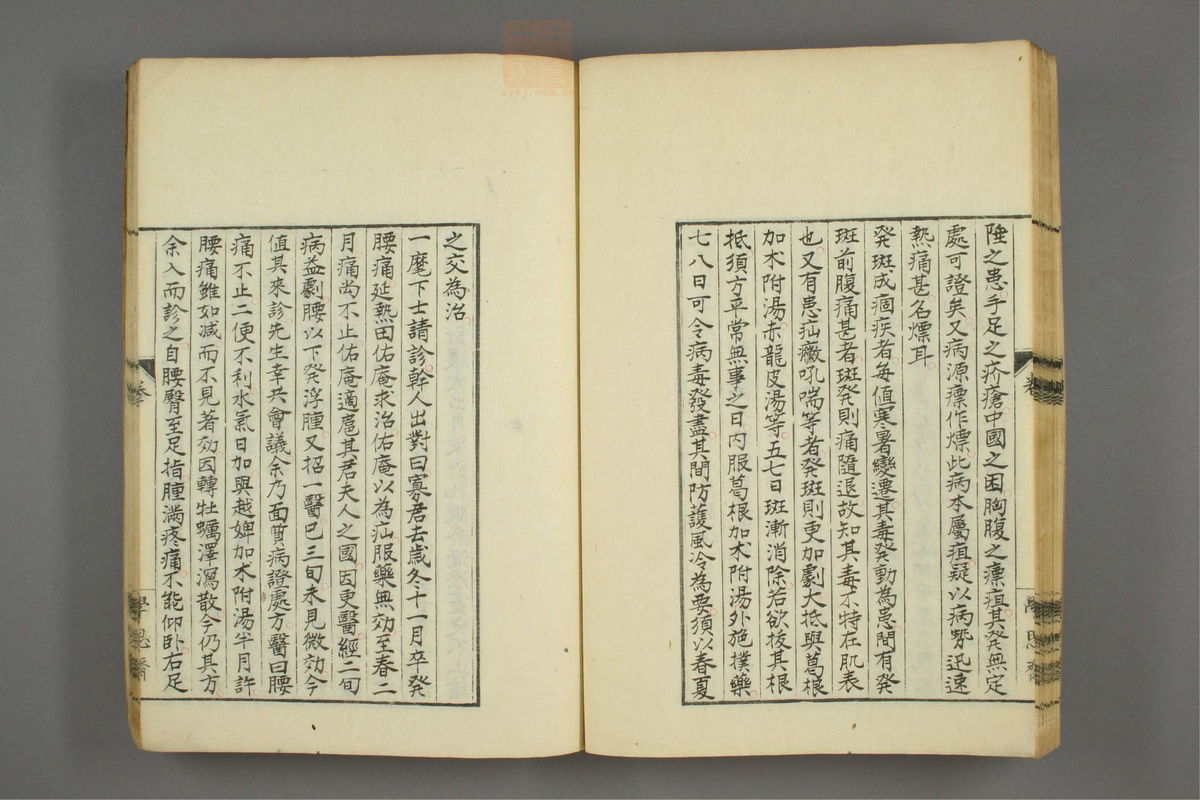 陲之患手足之疥瘡中國之困胸腹之瘭疽其発無定
處可證矣又病源瘭作熛此病本屬疽疑以病勢迅速
熱痛甚名熛耳
発斑成痼疾者每值寒暑變遷其毒発動為患間有発
斑前腹痛甚者斑発則痛隨退故知其毒不特在肌表
也又有患疝癥吼喘等者発斑則更加劇大抵與葛根
加朮附湯赤龍皮湯等五七日斑漸消除若欲拔其根
抵須方平常無事之日內服葛根加朮附湯外施撲藥
七八日可令病毒發盡其間防護風冷為要須以春夏
之交為治
一麾下士請診幹人出對曰寡君去歲冬十一月卒発
腰痛延熱田佑庵求治佑庵以為疝服藥無効至春二
月痛尚不止佑庵適扈其君夫人之國因更醫經二旬
病益劇腰以下発浮腫又招一醫巳三旬未見微効今
值其來診先生幸共會議余乃面質病證處方醫曰腰
痛不止二便不利水氣日加與越婢加朮附湯半月許
腰痛雖如減而不見著効因轉牡蠣澤瀉散今仍其方
余入而診之自腰臀至足指腫滿疼痛不能仰臥右足
學思齋